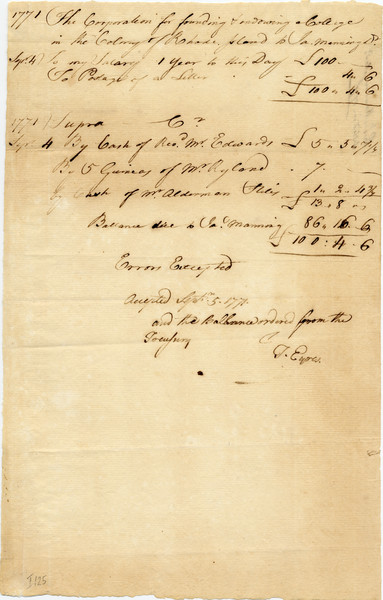 1771 The Corporation for founding & endowing a College
in the Colony of Rhode Island to Ja. Manning Dr.
Sept. 4 To my Salary 1 Year to this Day £ 100 —
To Postage of a Letter 4 6
£ 100 4 6
1771 Supra Cr.
Sept. 4 By Cash of Revd. Mr. Edwards £ 5 5 7½
By 5 Guineas of Mr. Ryland 7
By Cash of Mr. Alderman 1 2 4½
£ 13 8
Ballance due to Ja. Manning 86 16 6
£ 100 : 4 6
Errors Excepted
Accepted Sept. 5. 1771.
and the Ballance ordered from the
Treasury
T. Eyres
I 125